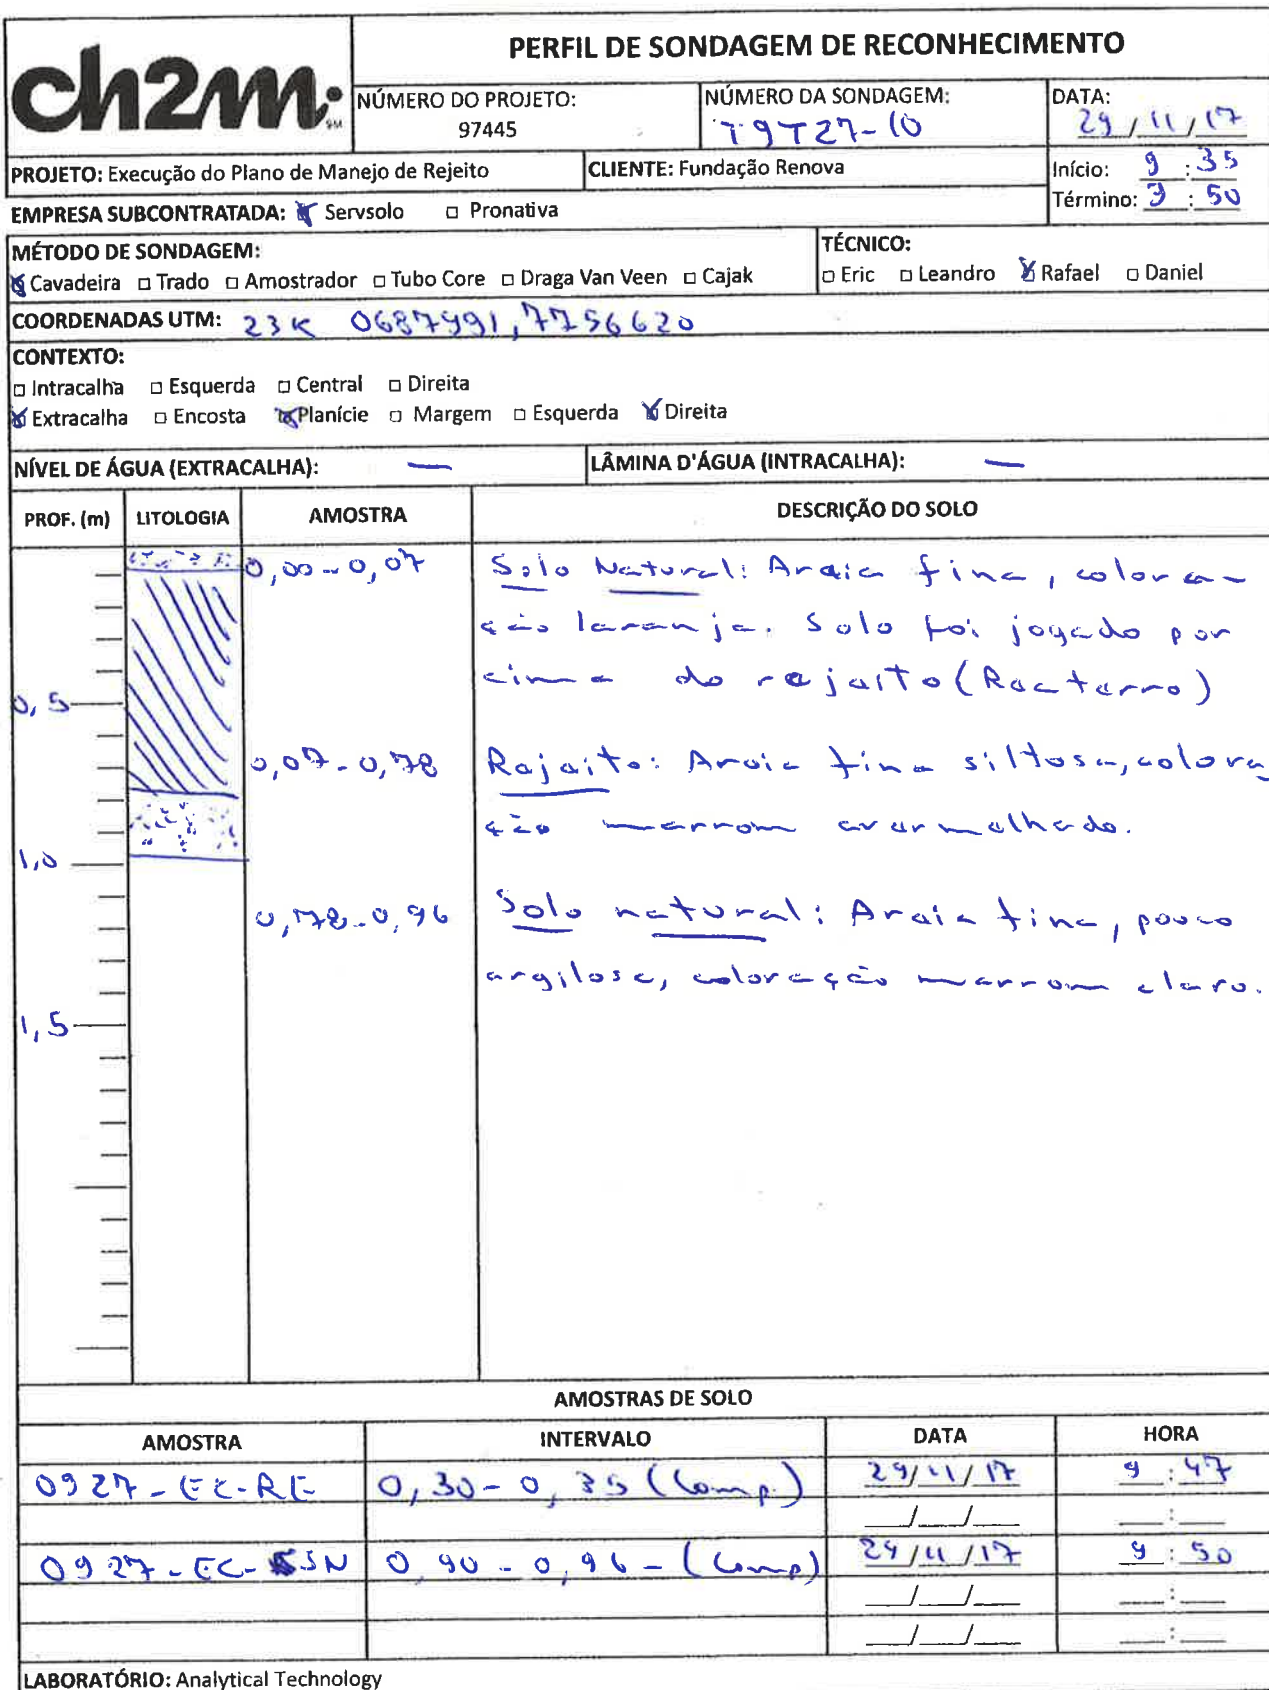 ch2m: SM
PERFIL DE SONDAGEM DE RECONHECIMENTO
NÚMERO DO PROJETO:
97445
NÚMERO DA SONDAGEM:
T9T27-10
DATA:
29/11/17
PROJETO: Execução do Plano de Manejo de Rejeito
CLIENTE: Fundação Renova
Início: 9:35
Término: 9:50
EMPRESA SUBCONTRATADA: Servsolo Pronativa
MÉTODO DE SONDAGEM:
Cavadeira Trado Amostrador Tubo Core Draga Van Veen Cajak
TÉCNICO:
Eric Leandro Rafael Daniel
COORDENADAS UTM: 23K 0687991,7756620
CONTEXTO:
Intracalha Esquerda Central Direita
Extracalha Encosta Planície Margem Esquerda Direita
NÍVEL DE ÁGUA (EXTRACALHA): —
LÂMINA D'ÁGUA (INTRACALHA): —
PROF. (m) LITOLOGIA AMOSTRA DESCRIÇÃO DO SOLO
0,00-0,07 Solo Natural: Areia fina, colora-
ção laranja. Solo foi jogado por
cima do rejeito (Reaterro)
0,5
0,07-0,78 Rejeito: Areia fina siltosa, colora
ção marrom avermelhado.
1,0
0,78-0,96 Solo natural: Areia fina, pouco
argilosa, coloração marrom claro.
1,5
AMOSTRAS DE SOLO
AMOSTRA INTERVALO DATA HORA
0927-EC-RE 0,30-0,35 (Comp.) 29/11/17 9:47
__/__/__ __:__
0927-EC-SN 0,90-0,96-(Comp) 29/11/17 9:50
__/__/__ __:__
__/__/__ __:__
LABORATÓRIO: Analytical Technology